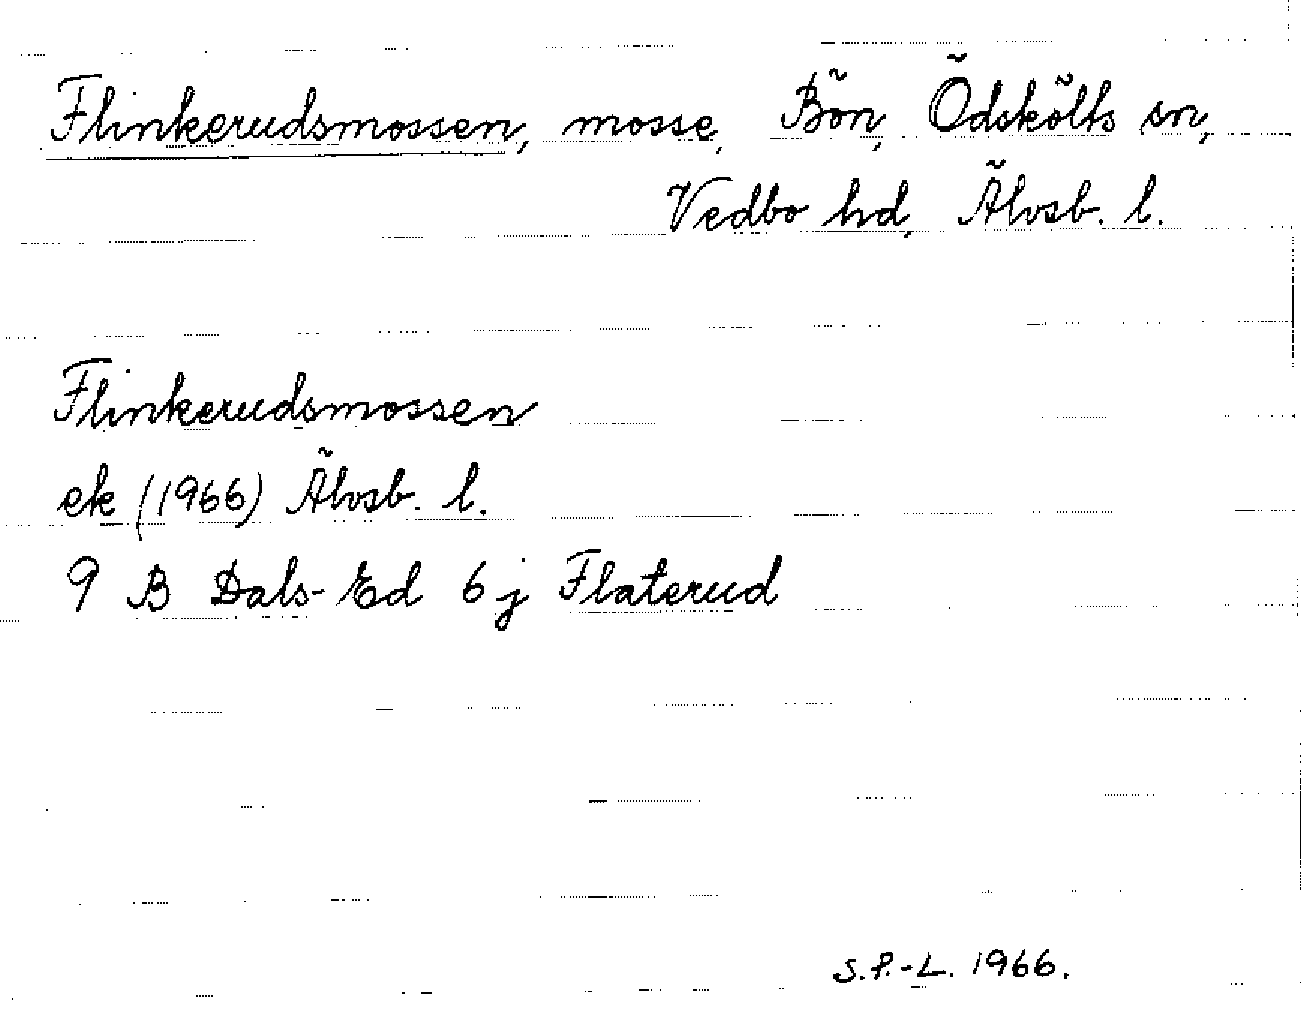 Flinkerudsmossen, mosse, Bön, Ödskölts sn,
Vedbo hd, Älvsb. l.
Flinkerudsmossen
ek (1966) Älvsb. l.
9 B Dals-Ed 6 j Flaterud
S.P.-L. 1966.